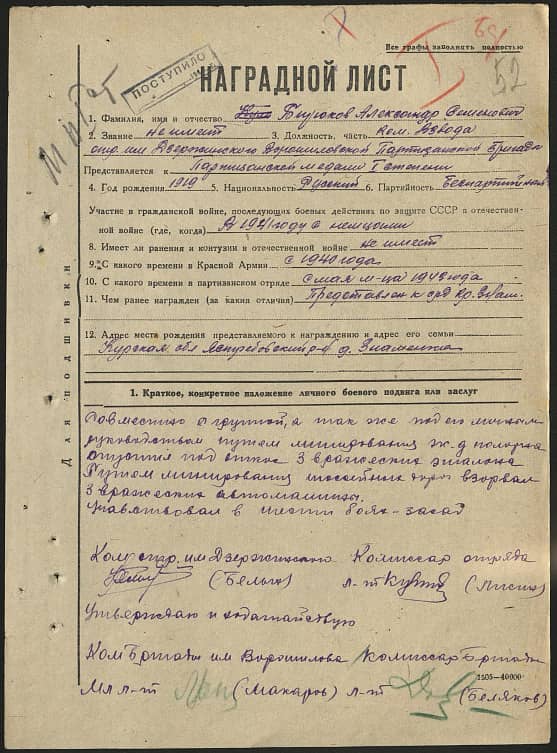 52
Все графы заполнять полностью
ПОСТУПИЛО
НАГРАДНОЙ ЛИСТ
1. Фамилия, имя и отчество Бирюков Александр Семенович
2. Звание не имеет 3. Должность, часть ком. взвода
отр. им Дзержинского Ворошиловской Партизанской бригады
Представляется к Партизанской медали I степени
4. Год рождения 1919 5. Национальность Русский 6. Партийность Беспартийный
Участие в гражданской войне, последующих боевых действиях по защите СССР и отечествен-
ной войне (где, когда) в 1941 году с немцами
8. Имеет ли ранения и контузии в отечественной войне не имеет
9. С какого времени в Красной Армии с 1940 года
10. С какого времени в партизанском отряде с мая м-ца 1943 года
11. Чем ранее награжден (за какия отличия) Представлен к орд Кр. Знам.
12. Адрес места рождения представляемого к награждению и адрес его семьи
Курская обл Ястребовский р-н д. Знаменка
Для подшивки
1. Краткое, конкретное изложение личного боевого подвига или заслуг
Совместно с группой, а так же под его личным
руководством путем минирования ж.д полотна
спустил под откос 3 вражеских эшалона
Путем минирования шоссейных дорог взорвал
3 вражеских автомашины.
Участвовал в шести боях-засад
Ком отр. им Дзержинского Комиссар отряда
(Белых) л-т (Лисин)
Утверждаю и ходатайствую
КомБригады им Ворошилова Комиссар Бригады
1105-40000
Мл л-т (Макаров) л-т (Беляков)